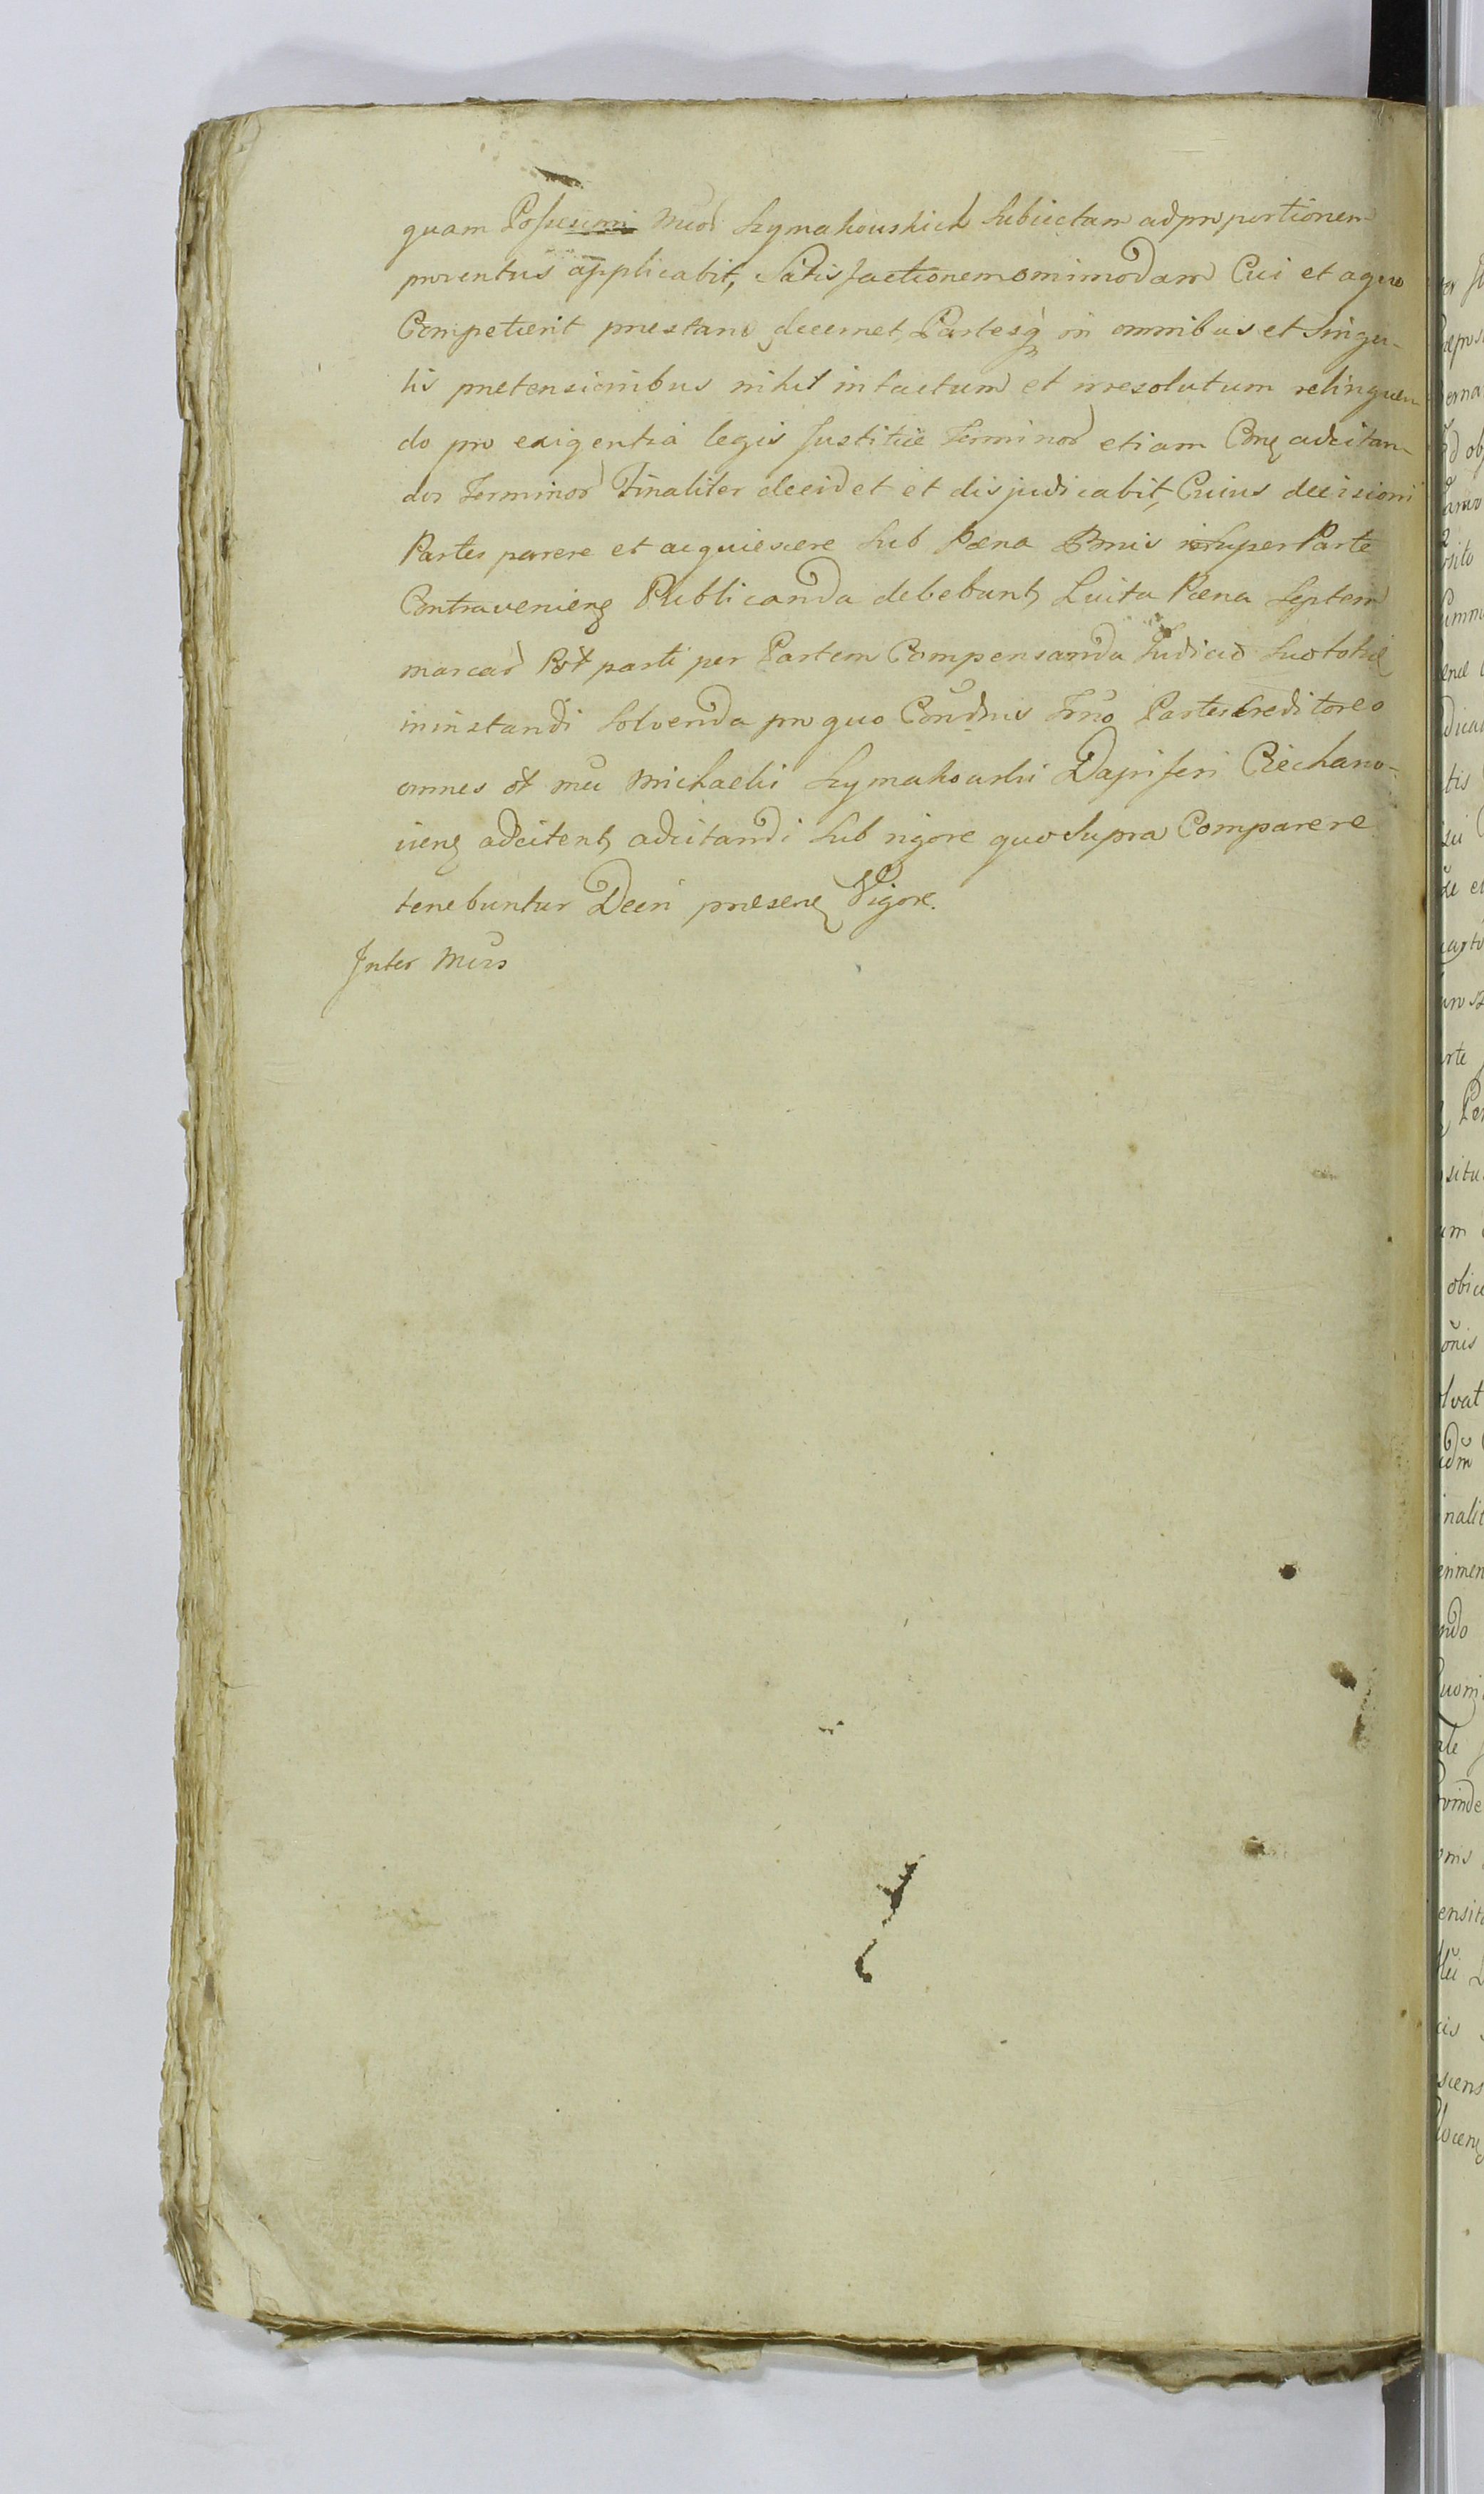 quam Possessioni Mcor Szymakowskich Subiectam ad proportionem
proventus applicabit, Satisfactionem omnimodam Cui et a quo
Competierit praestand decernet, Partesq in omnibus et Singu-
lis praetensionibus nihil intactum et irresolutum relinquen
do pro exigentia legis Justitiae Terminor etiam Conq adcitan-
dor Terminor Finaliter decidet et disjudicabit, Cuius decisioni
Partes parere et acquiescere Sub Paena Bnnis insuper Parte
Contravenienq Publicanda debebunt, Luita Paena Septem
marcar Pot parti per Partem Compensanda Judicio Suo totie
in instandi Solvenda pro quo Condnis Trno Partes Creditores
omnes et mci Michaelis Szymakowski Dapiferi Ciechano-
vienq adcitent, adcitandi Sub rigore quo Supra Comparere
tenebuntur Decri praesenq Vigore.
Inter Mcos